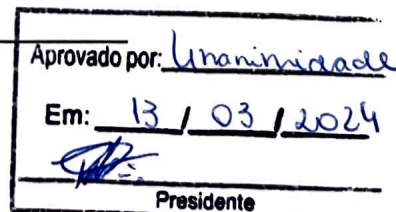 Aprovado por: Unanimidade
Em: 13 / 03 / 2024
Presidente